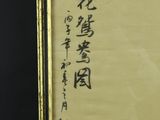 花鴛鴦圖
丙子年初春之月